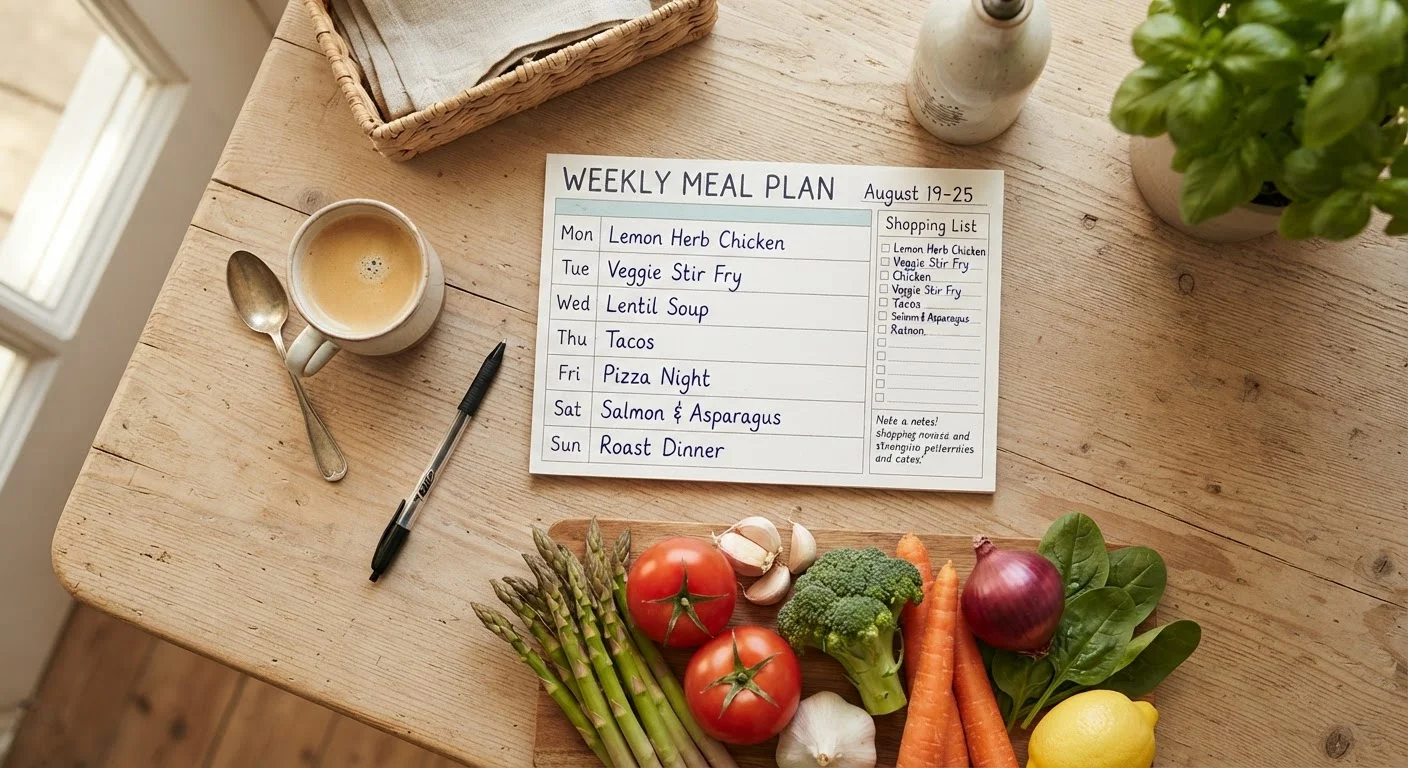 WEEKLY MEAL PLAN
August 19-25
Mon Lemon Herb Chicken
Tue Veggie Stir Fry
Wed Lentil Soup
Thu Tacos
Fri Pizza Night
Sat Salmon & Asparagus
Sun Roast Dinner
Shopping List
Lemon Herb Chicken
Veggie Stir Fry
Chicken
Vorgie Stir Fry
Tacos
& Asparagus
Ratnon
Note a notes!
Shopping and
and cates.'